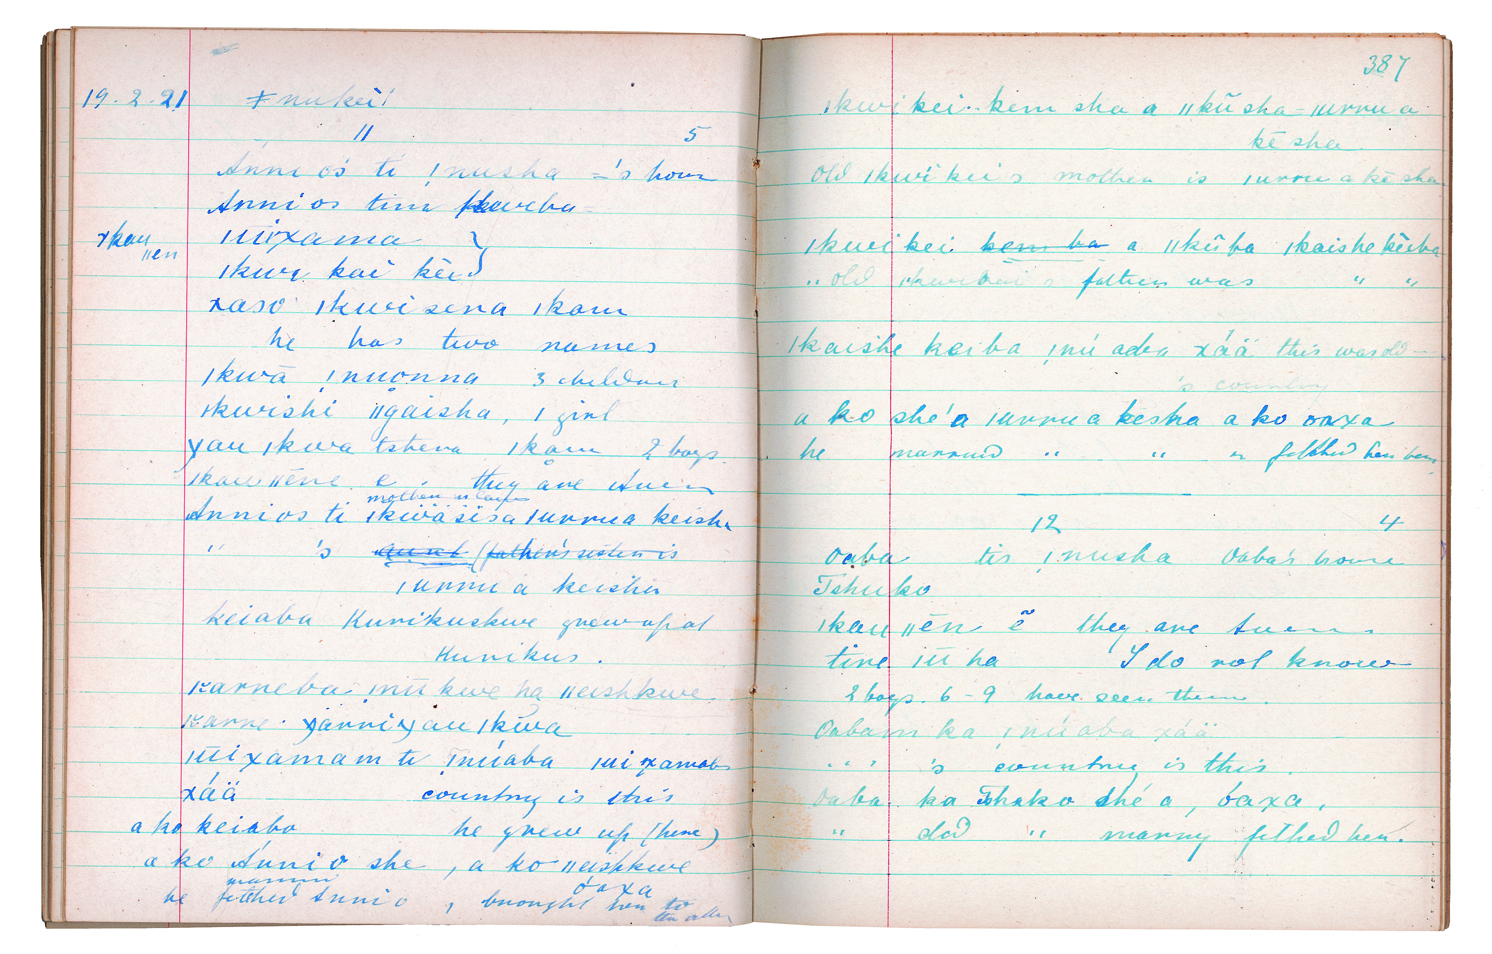 19.2.21 ǂnukei!
11 5
Ánnios ti ǃnusha ='s home
Annios tim
ǀkau ǁen ǀūixama }
ǀkwi kai kēi
xaso ǀkwisena ǀkam
he has two names
ǀkwā ǃnuonna 3 children
ǀkwishi ǁgaisha, 1 girl
ǀkwa tshena ǀkam 2 boys.
ǀkau ǁēne e . they are Auen
mother in law
Annios ti ǀkwāsisa ǀurrua keisha
" 's aunt (father's sister is
ǀurrua keisha
keiaba Kurikuskwe grew up at
Hurikus.
karneba ǀnū kwe ha ǁeishkwe
karne.
ǀūixamam ti ǃnúaba ǀūixamabs
xáä country is this
a ko keiaba he grew up (here)
a ko Ánnio she, a ko ǁeishkwe
married óaxa
he fetched Annio, brought her to
387
ǀkwikei kem sha a ǁkūsha ǀurrua
kēsha.
Old ǀkwikei's mother is ǀurrua kēsha.
ǀkwikei kem ba a ǁkūba ǀkaishekēiba
" old ǀkwikei's father was " "
ǀkaishe keiba ǃnú aba xáä this was old
's country
a ko she'a ǀurrua kesha a ko oaxa
he married " " " fetched her home
12 4
Oaba tis ǃnusha Oaba's home
Tshuko
ǀkau ǁēn ē they are Auen
tine ǀūha I do not know
2 boys. 6-9 have seen them.
Oabam ka ǃnúaba xáä
" " " 's country is this.
Oaba ka Tshuko shé a, óaxa,
" did " marry fetched her.